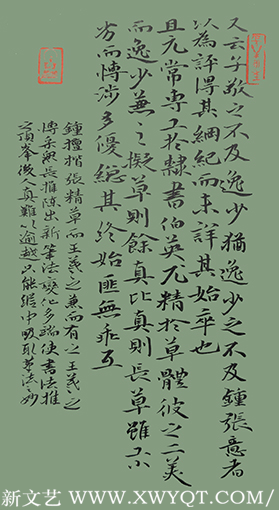 又云子敬之不及逸少猶逸少之不及鍾張意者
以為評得其綱紀而未詳其始卒也
且元常專工於隸書伯英尤精於草體彼之二美
而逸少兼之擬草則餘真比真則長草雖
而博涉多優總其終始匪無乖互
鍾擅楷張精草而王羲之兼而有之王羲之
博采眾長推陳出新筆法變化多端使書法推
之頂峯後人真難以逾越只能從中吸取筆法之妙
新文艺 WWW.XWYQT.COM/